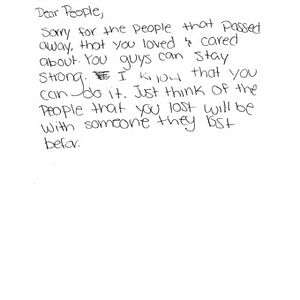 Dear People,
Sorry for the people that passed
away, that you loved & cared
about. You guys can stay
strong. I know that you
can do it. Just think of the
people that you lost will be
with someone they lost
befor.